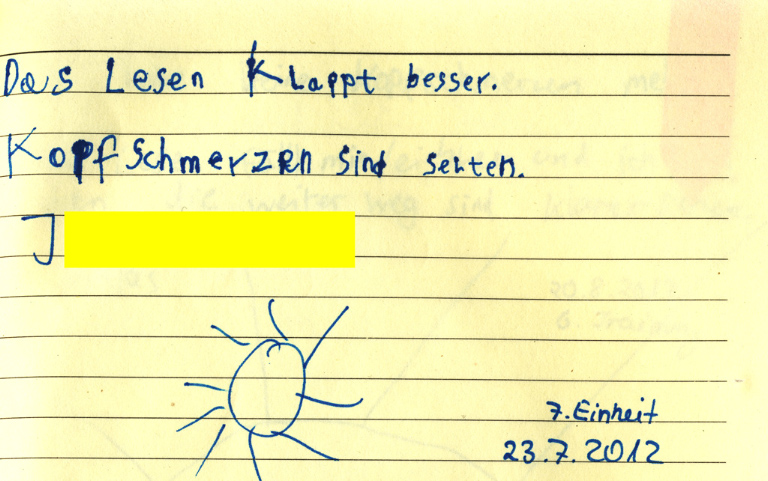 Das Lesen Klappt besser.
Kopfschmerzen sind selten.
J
7. Einheit
23.7.2012